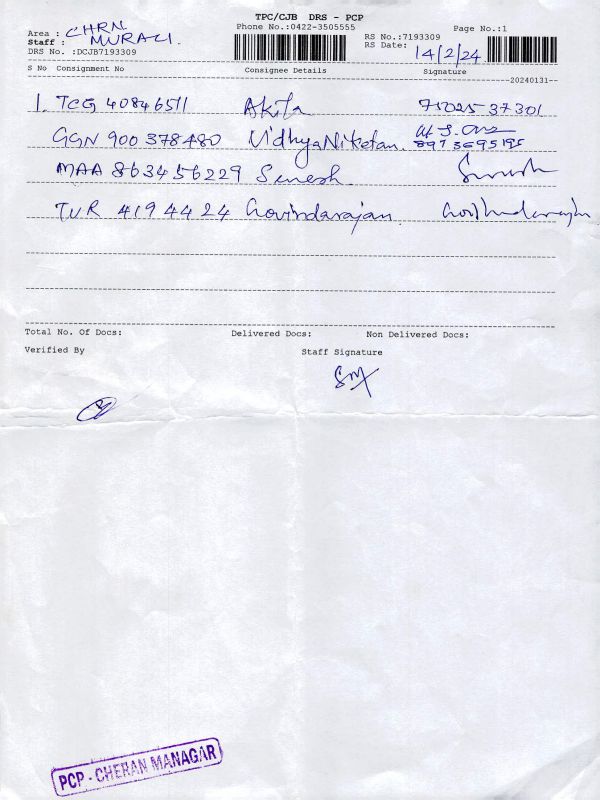 TPC/CJB DRS - PCP
Phone No.:0422-3505555
Page No.:1
Area : CHRN
Staff : MURALI.
DRS No. :DCJB7193309
RS No.:7193309
RS Date: 14/2/24
S No Consignment No Consignee Details Signature
20240131
1. TCG 40846511 Akila 7502537301
GGN 900378480 VidhyaNiketan. 8973695195
MAA 863456229 Suresh. Suresh
TVR 4194424 Govindarajan. Govindarajan
Total No. Of Docs: Delivered Docs: Non Delivered Docs:
Verified By Staff Signature
PCP - CHERAN MANAGAR